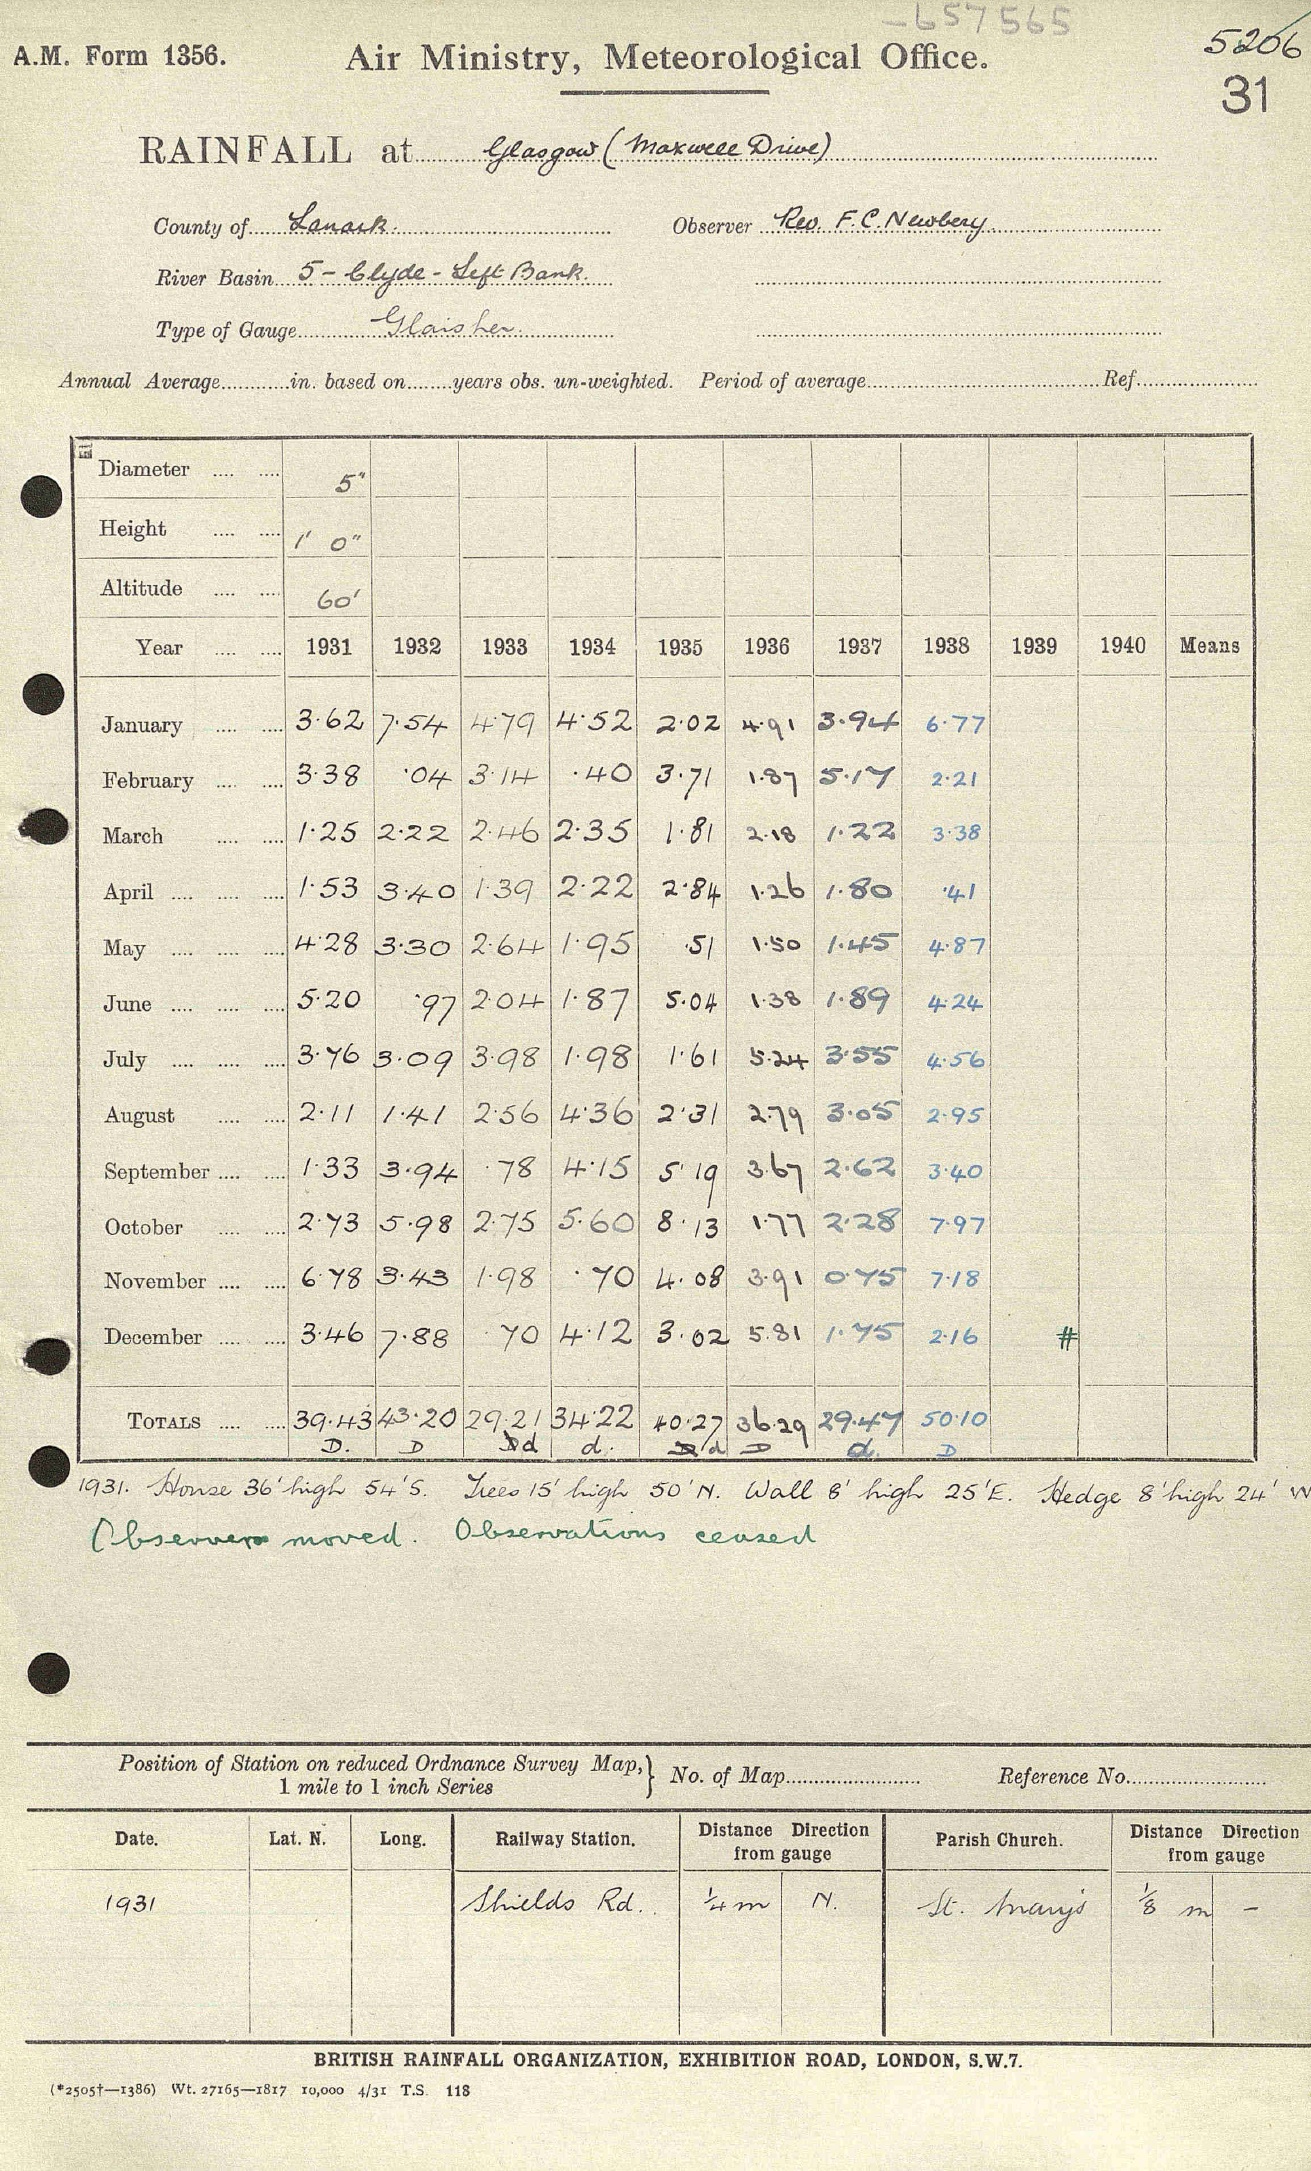 -657565
5206
A.M. Form 1356. Air Ministry, Meteorological Office.
31
RAINFALL at Glasgow (Maxwell Drive)
County of Lanark. Observer Rev. F.C. Newbery
River Basin 5 - Clyde - Left Bank.
Type of Gauge Glaisher.
Annual Average in. based on years obs. un-weighted. Period of average Ref.
Diameter 5"
Height 1' 0"
Altitude 60'
Year 1931 1932 1933 1934 1935 1936 1937 1938 1939 1940 Means
January 3·62 7·54 4·79 4·52 2·02 4·91 3·94 6·77
February 3·38 ·04 3·14 ·40 3·71 1·87 5·17 2·21
March 1·25 2·22 2·46 2·35 1·81 2·18 1·22 3·38
April 1·53 3·40 1·39 2·22 2·84 1·26 1·80 ·41
May 4·28 3·30 2·64 1·95 ·51 1·50 1·45 4·87
June 5·20 ·97 2·04 1·87 5·04 1·38 1·89 4·24
July 3·76 3·09 3·98 1·98 1·61 5·24 3·55 4·56
August 2·11 1·41 2·56 4·36 2·31 2·79 3·05 2·95
September 1·33 3·94 ·78 4·15 5·19 3·67 2·62 3·40
October 2·73 5·98 2·75 5·60 8·13 1·77 2·28 7·97
November 6·78 3·43 1·98 ·70 4·08 3·91 0·75 7·18
December 3·46 7·88 ·70 4·12 3·02 5·81 1·75 2·16 #
TOTALS 39·43 43·20 29·21 34·22 40·27 36·29 29·47 50·10
D. D d d. d D d. D
1931. House 36' high 54' S. Trees 15' high 50' N. Wall 8' high 25' E. Hedge 8' high 24' W
Observer moved. Observations ceased
Position of Station on reduced Ordnance Survey Map, } No. of Map Reference No.
1 mile to 1 inch Series
Date. Lat. N. Long. Railway Station. Distance Direction from gauge Parish Church. Distance Direction from gauge
1931 Shields Rd. ¼ m N. St. Mary's ⅛ m -
BRITISH RAINFALL ORGANIZATION, EXHIBITION ROAD, LONDON, S.W.7.
(*2505†—1386) Wt. 27165—1817 10,000 4/31 T.S. 118